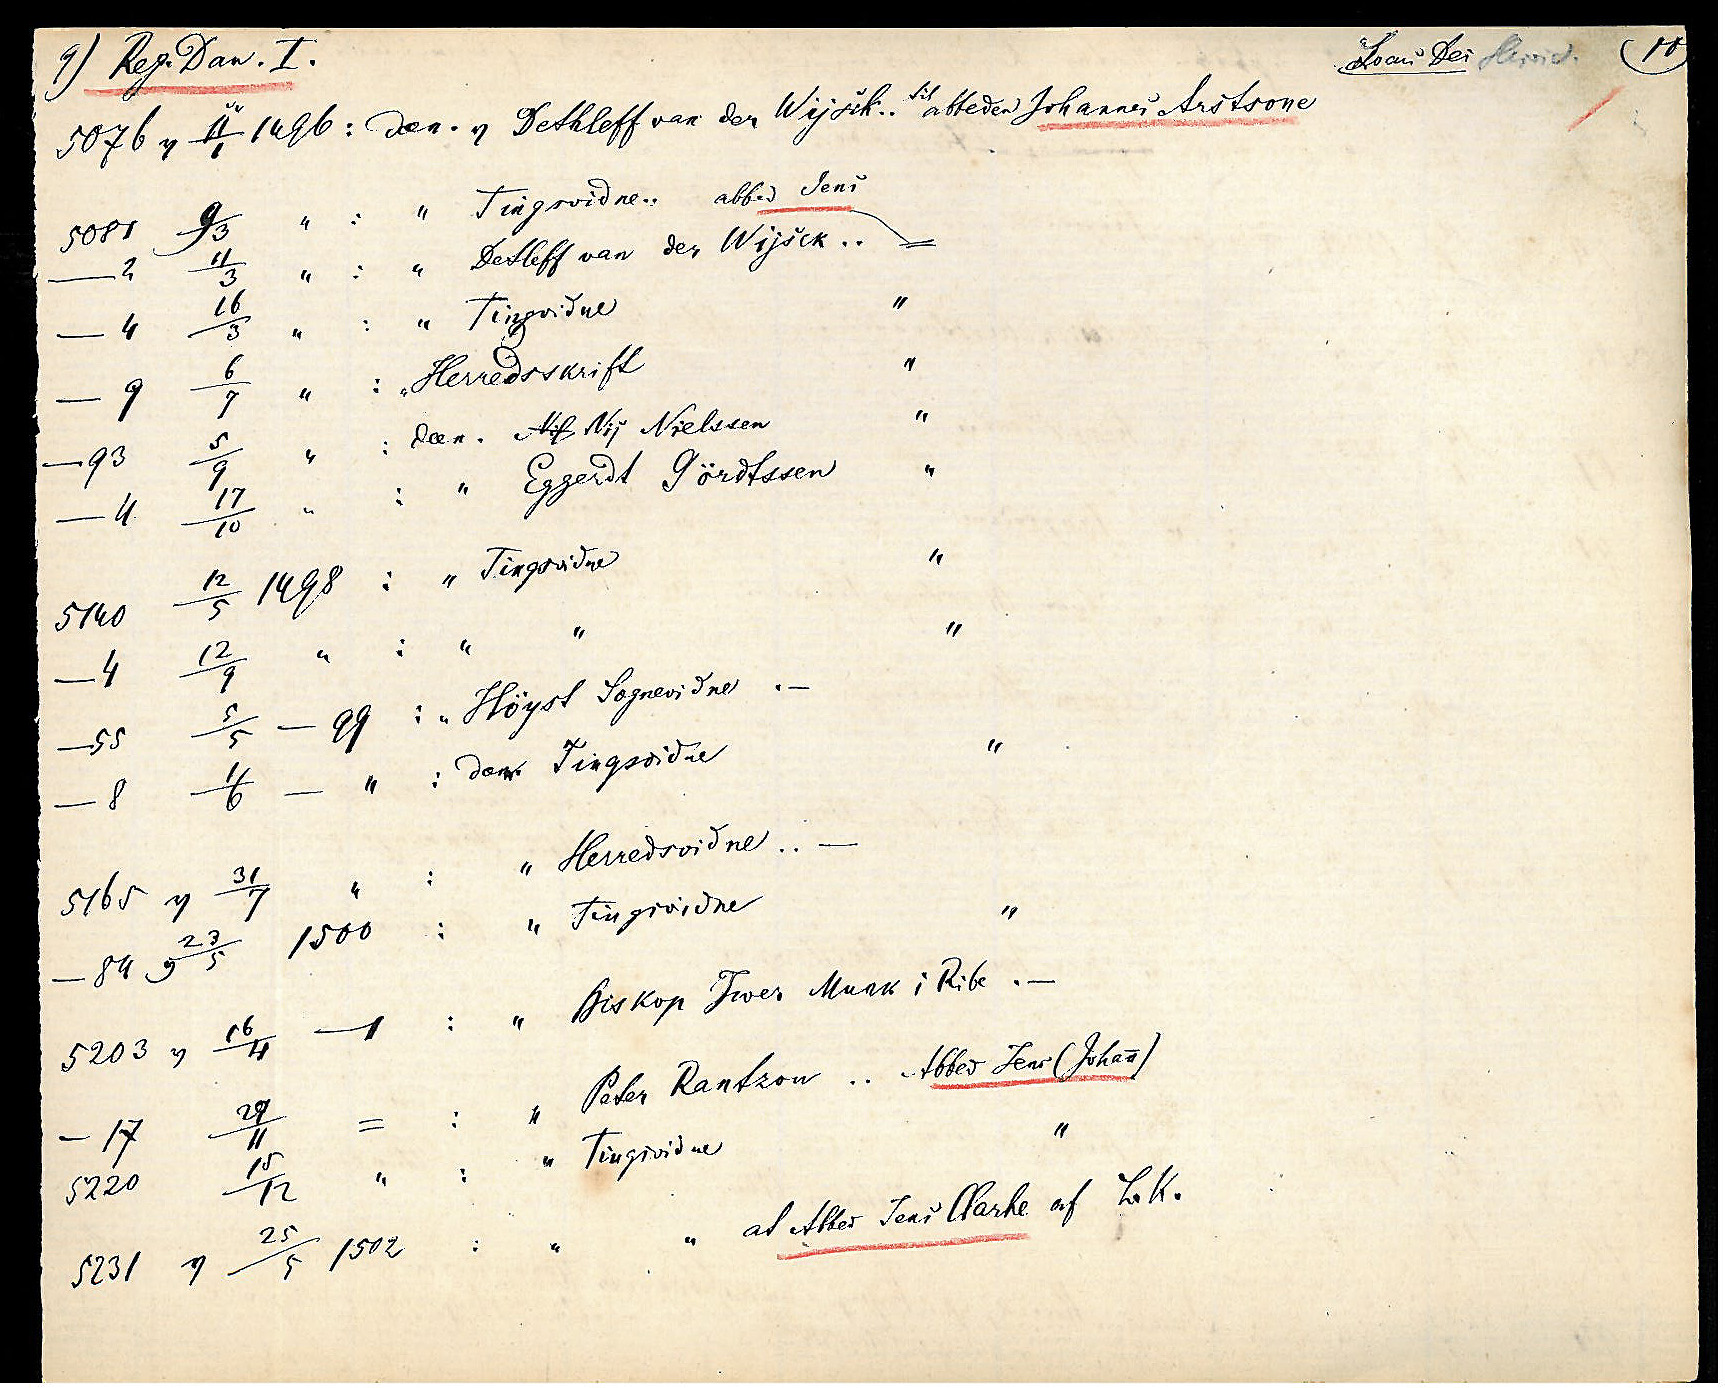 9) Reg. Dan. I. Locus Dei (10
5076 y 11/1 1496 : dæn. y Dethleff van der Wijsck.. til abbeden Johannes Arstsone
5081 9/3 " : " Tingsvidne.. abbed Jens
—2 11/3 " : " Detleff van der Wijsck .. =
—4 16/3 " : " Tingvidne "
—9 6/7 " : " Herredsskrift "
—93 5/9 " : dæn. Nis Nij Nielssen "
—4 17/10 " : " Eggerdt Gördtssen "
5140 12/5 1498 : " Tingsvidne "
—4 12/9 " : " " "
—55 5/5 — 99 : " Höyst Sognevidne .—
—8 1/6 — " : dæn. Tingsvidne "
5165 y 31/7 " : " Herredsvidne .. —
—84 y 23/5 1500 : " Tingsvidne "
5203 y 16/4 —1 : " Biskop Iwer Munk i Ribe .—
—17 29/11 = : " Peter Rantzou .. Abbed Jens (Johan)
5220 15/12 " : " Tingsvidne "
5231 y 25/5 1502 : " " at Abbed Jens Clarke af L.K.